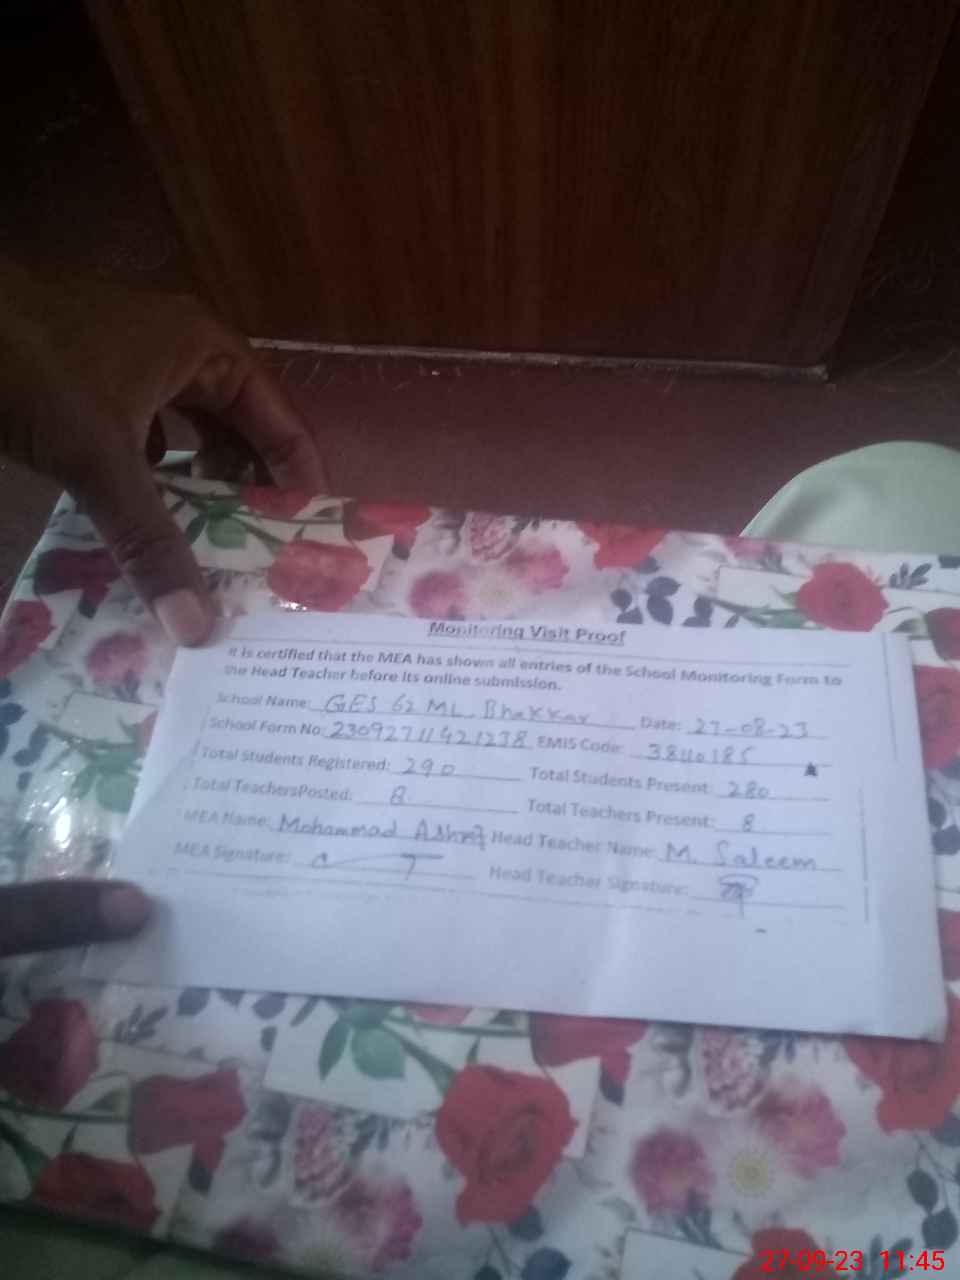 Monitoring Visit Proof
It is certified that the MEA has shown all entries of the School Monitoring Form to
the Head Teacher before its online submission.
School Name: GES 62 ML, Bhakkar Date: 27-08-23
School Form No: 23092711421238 EMIS Code: 38110185
Total Students Registered: 290 Total Students Present: 280
Total TeachersPosted: 8 Total Teachers Present: 8
MEA Name: Mohammad Ashraf Head Teacher Name: M. Saleem
MEA Signature: Head Teacher Signature:
27-09-23 11:45